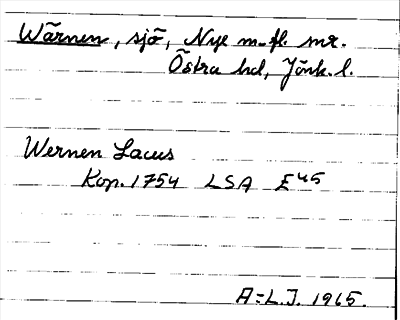 Wärnen, sjö, Nye m. fl. snr.
Östra hd, Jönk. l.
Wernen Lacus
Kop. 1754 LSA E45
A-L. J. 1965.